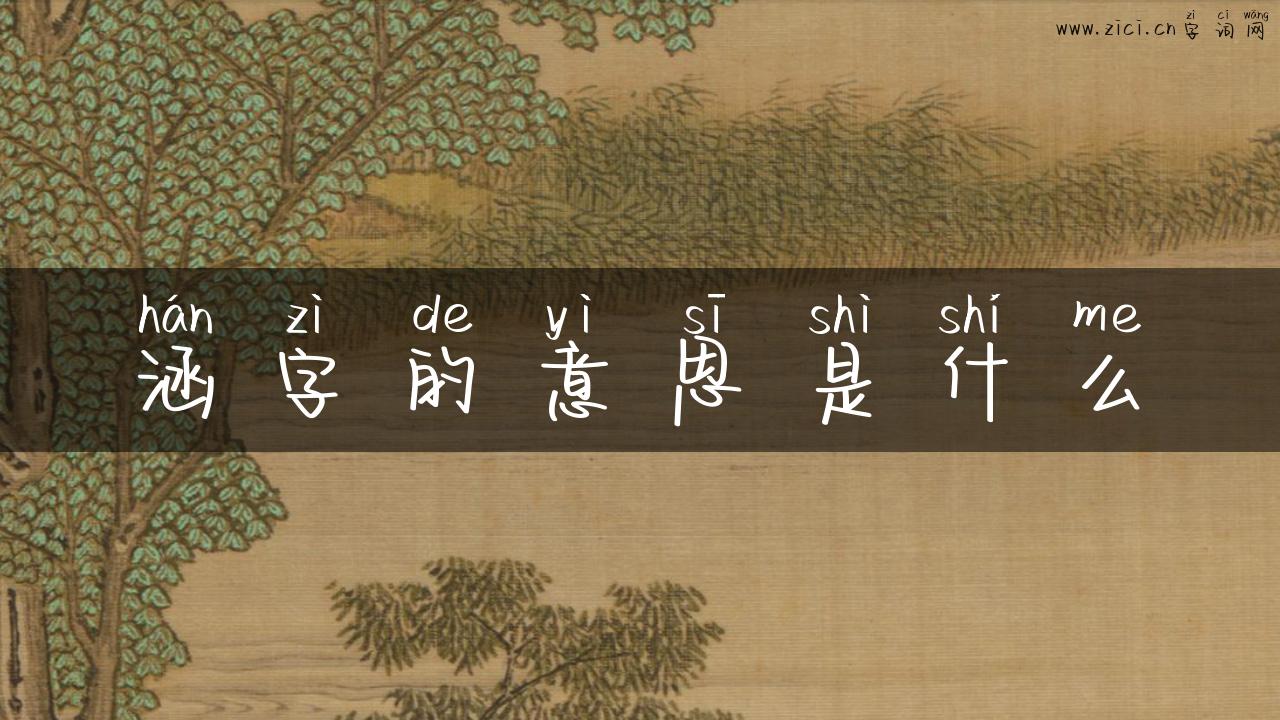 zì cí wǎng
www.zici.cn字词网
hán zì de yì sī shì shí me
涵字的意思是什么